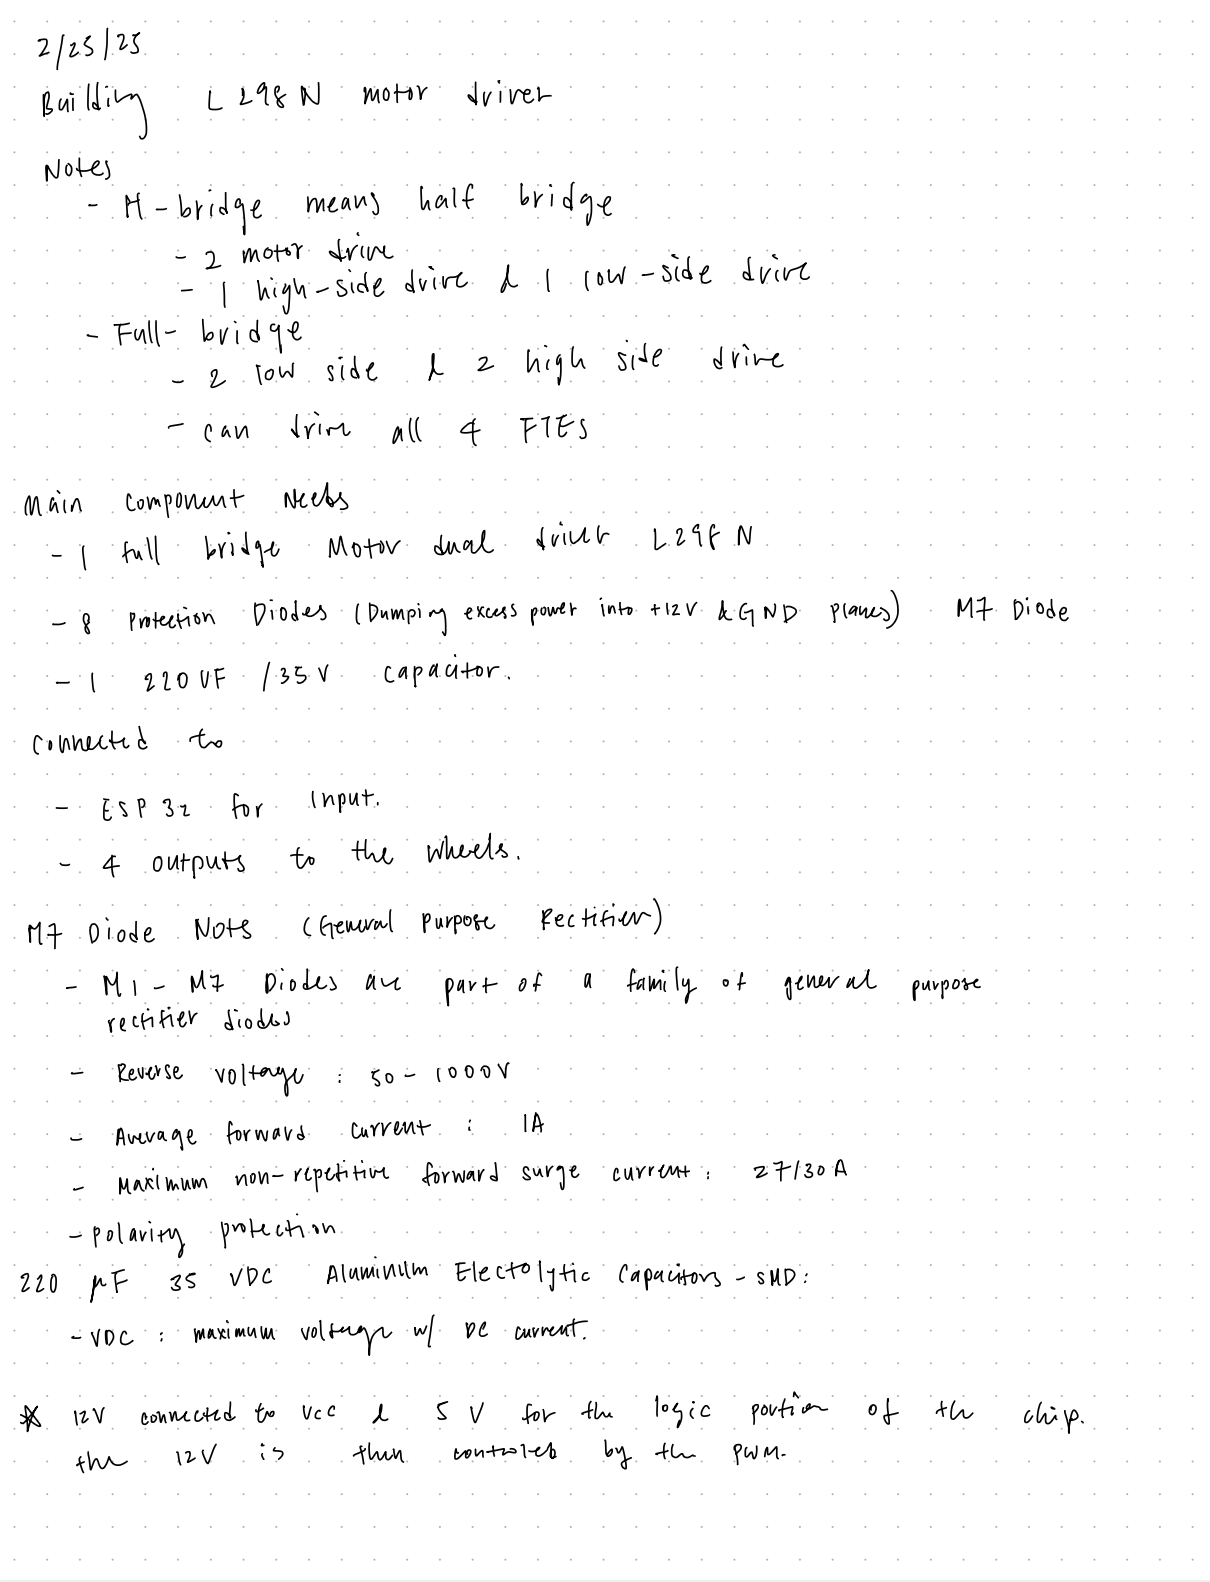 2/25/25
Building L298N motor driver
Notes
- H-bridge means half bridge
- 2 motor drive
- 1 high-side drive & 1 low-side drive
- Full-bridge
- 2 low side & 2 high side drive
- can drive all 4 FTES
Main Component Needs
- 1 full bridge Motor dual driver L298N
- 8 Protection Diodes (Dumping excess power into +12V & GND Planes) M7 Diode
- 1 220UF /35V capacitor.
Connected to
- ESP32 for Input.
- 4 outputs to the wheels.
M7 Diode Notes (General Purpose Rectifier)
- M1 - M7 Diodes are part of a family of general purpose
rectifier diodes
- Reverse voltage : 50 - 1000V
- Average forward current : 1A
- Maximum non-repetitive forward surge current : 27/30A
- Polarity protection
220 μF 35 VDC Aluminum Electolytic Capacitors - SMD:
- VDC : maximum voltage w/ DC current.
* 12V connected to VCC & 5V for the logic portion of the chip.
the 12V is then controled by the PWM.